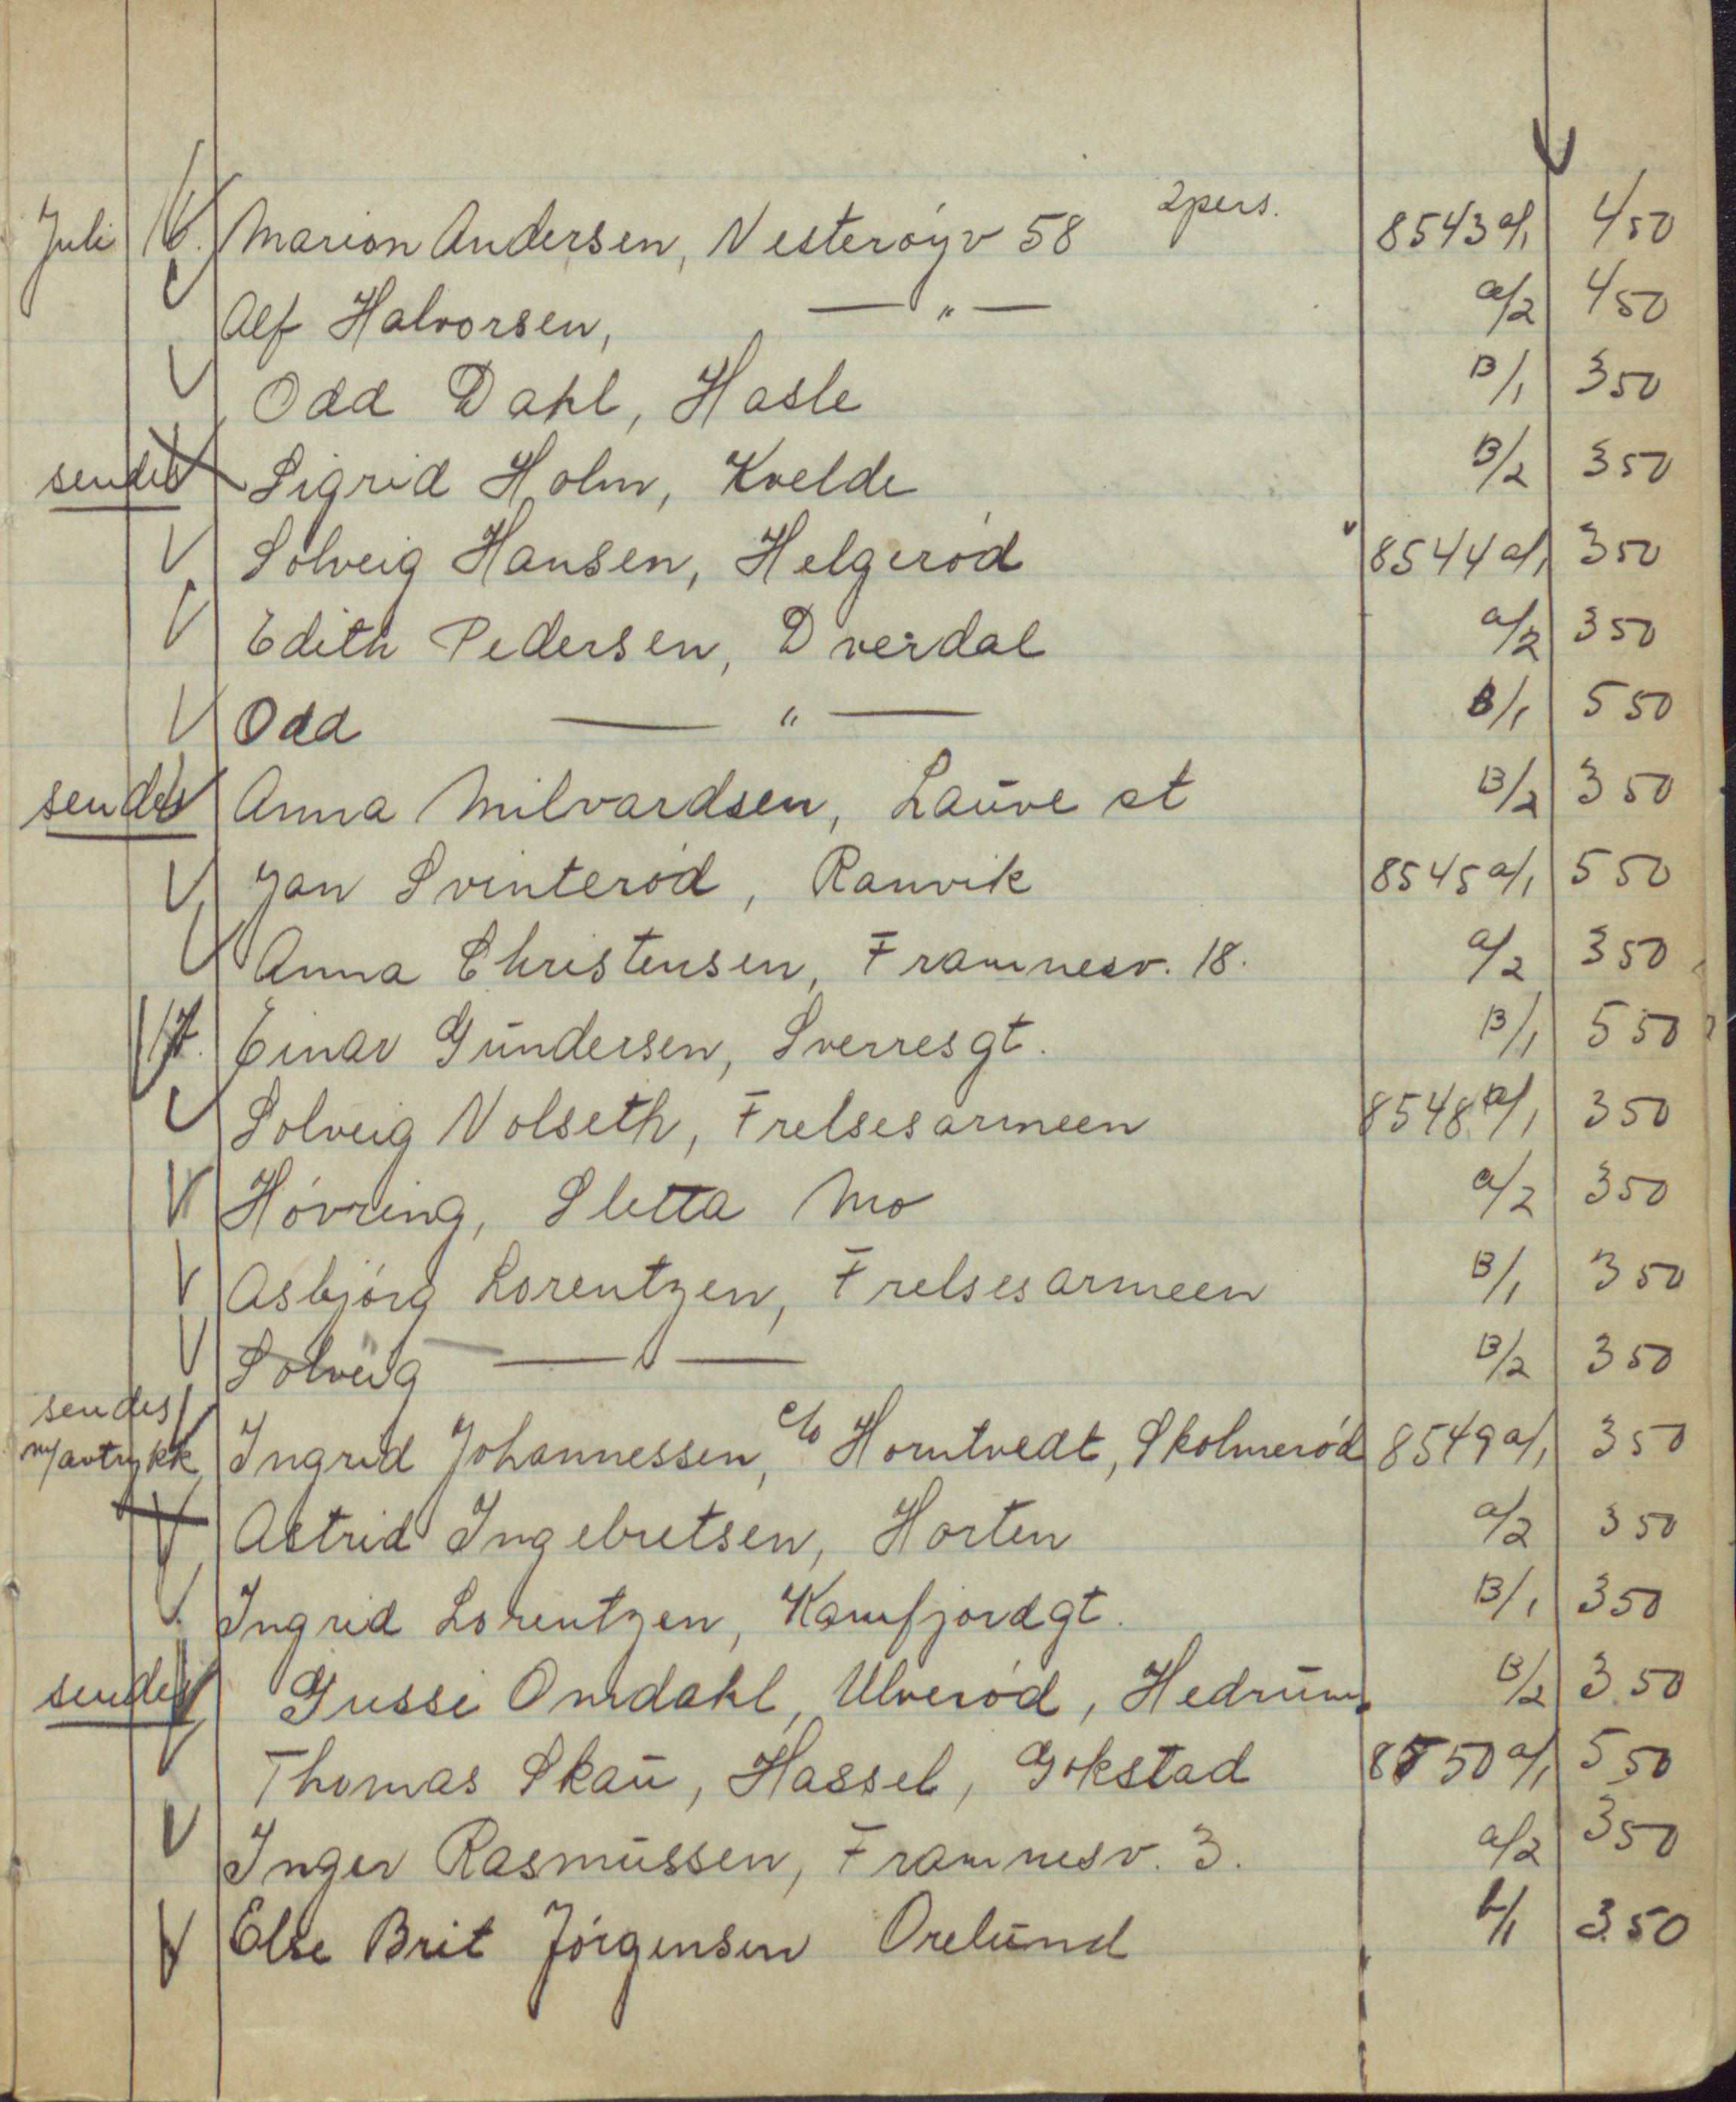 Juli 16. Marion Andersen, Nesteröyv 58 2pers. 8543 a/1 4 50
Alf Halvorsen, — " — a/2 4 50
Odd Dahl, Hasle B/1 3 50
sendes Sigrid Holm, Kvelde B/2 3 50
Solveig Hansen, Helgeród 8544 a/1 3 50
Edith Pedersen, Dverdal a/2 3 50
Odd — " — B/1 5 50
sendes Anna Milvardsen, Lauve st B/2 3 50
Jan Svinteród, Ranvik 8545 a/1 5 50
Anna Christensen, Framnesv. 18. a/2 3 50
17. Einar Gundersen, Sverresgt. B/1 5 50
Solveig Nolseth, Frelsesarmeen 8548 a/1 3 50
Hóvring, Sletta Mo a/2 3 50
Asbjórg Lorentzen, Frelsesarmeen B/1 3 50
Solveig — " — B/2 3 50
sendes
m/avtrykk Ingrid Johannessen, c/o Horntvedt, Skolmeród 8549 a/1 3 50
Astrid Ingebretsen, Horten a/2 3 50
Ingrid Lorentzen, Kamfjordgt. B/1 3 50
sendes Gussi Omdahl, Ulveród, Hedrum. B/2 3 50
Thomas Skau, Hassel, Gokstad 8550 a/1 5 50
Inger Rasmussen, Framnesv. 3. a/2 3 50
Else Brit Jórgensen Orelund b/1 3.50